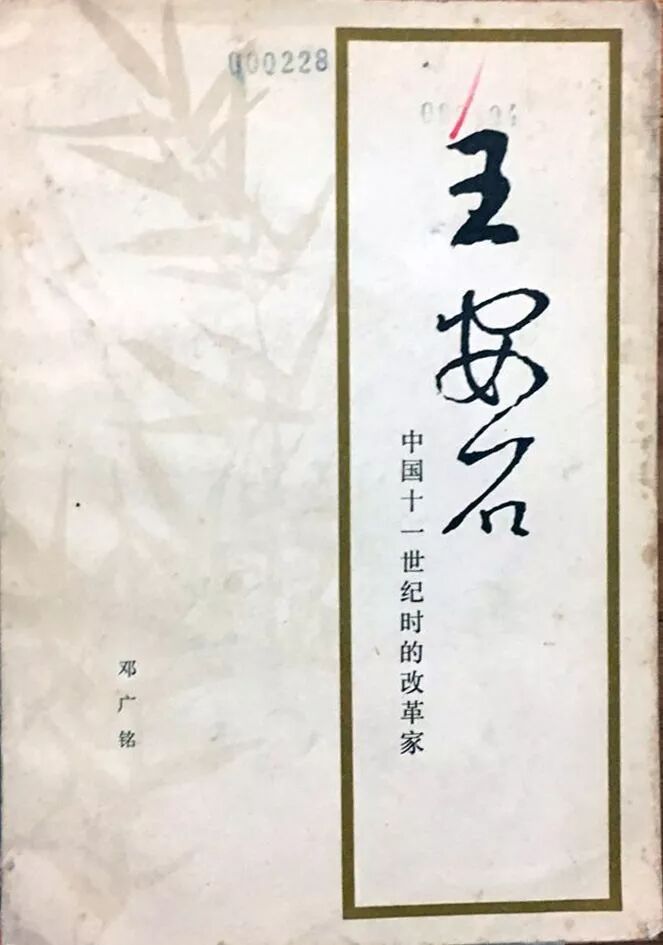 000228
王安石
中国十一世纪时的改革家
邓广铭